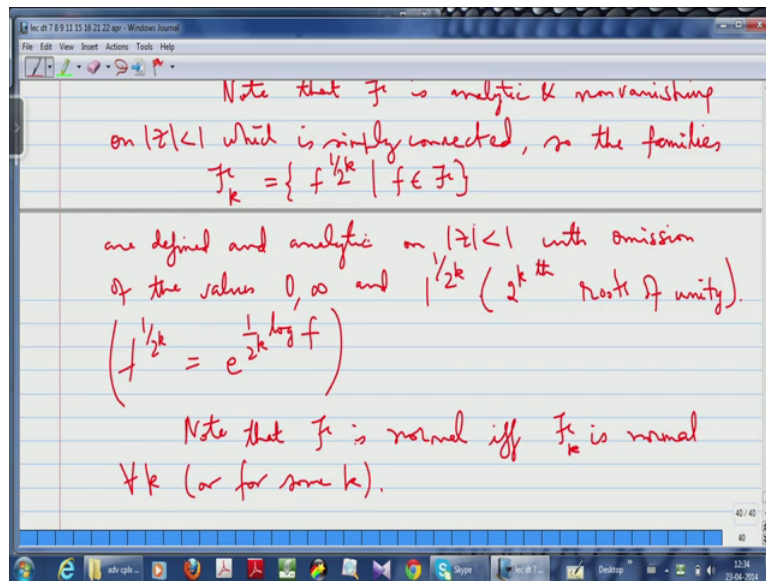 lec dt 7 8 9 11 15 16 21 22 apr - Windows Journal
File Edit View Insert Actions Tools Help
Note that ℱ is analytic & nonvanishing
on |z|<1 which is simply connected, so the families
ℱ_k = { f^{1/2^k} | f ∈ ℱ }
are defined and analytic on |z|<1 with omission
of the values 0, ∞ and 1^{1/2^k} (2^k th roots of unity).
( f^{1/2^k} = e^{1/2^k log f} )
Note that ℱ is normal iff ℱ_k is normal
∀k (or for some k).
40 / 40
40
adv cplx ...
Skype
lec dt 7 ...
Desktop
12:34
23-04-2014